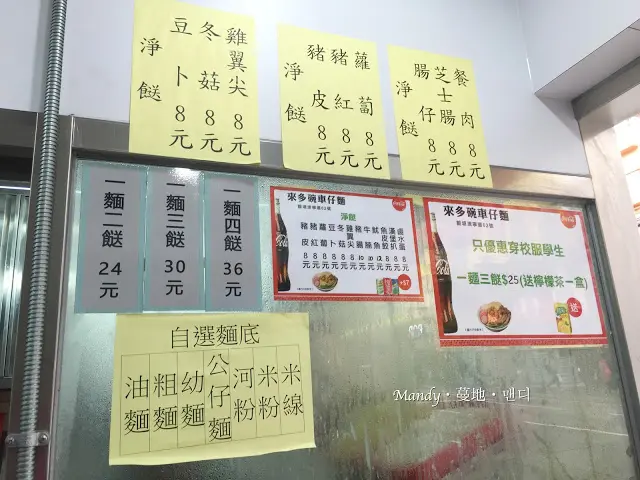 淨餸
雞翼尖 8元
冬菇 8元
豆卜 8元
淨餸
蘿蔔 8元
豬紅 8元
豬皮 8元
淨餸
餐肉 8元
芝士腸 8元
腸仔 8元
一麵二餸 24元
一麵三餸 30元
一麵四餸 36元
來多碗車仔麵
淨餸
豬皮 8元
豬紅 8元
蘿蔔 8元
豆卜 8元
冬菇 8元
雞翼尖 8元
來多碗車仔麵
只優惠穿校服學生
一麵三餸$25(送檸檬茶一盒)
送
+$7
自選麵底
油麵
粗麵
幼麵
公仔麵
河粉
米粉
米線
Mandy・蔓地・맨디